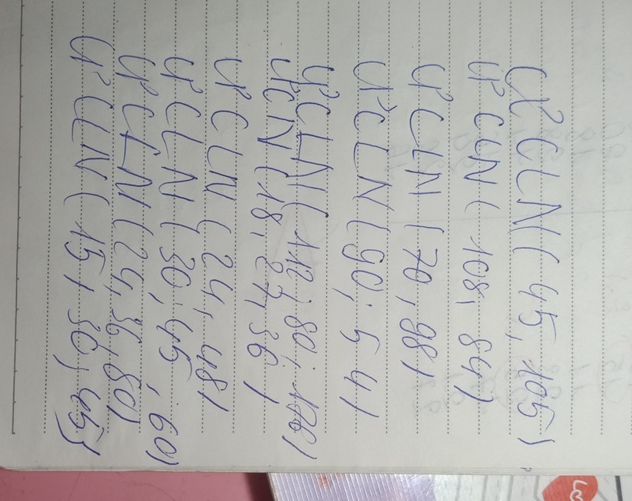 ƯCLN ( 45, 105 )
ƯCLN ( 108, 84)
ƯCLN (70, 98)
ƯCLN (90; 54)
ƯCLN( 112; 80; 168)
ƯCN (18, 27, 36 )
ƯCLN (24, 48)
ƯCLN (30, 45, 60)
ƯCLN (24, 36, 80)
ƯCLN ( 15, 30, 45)